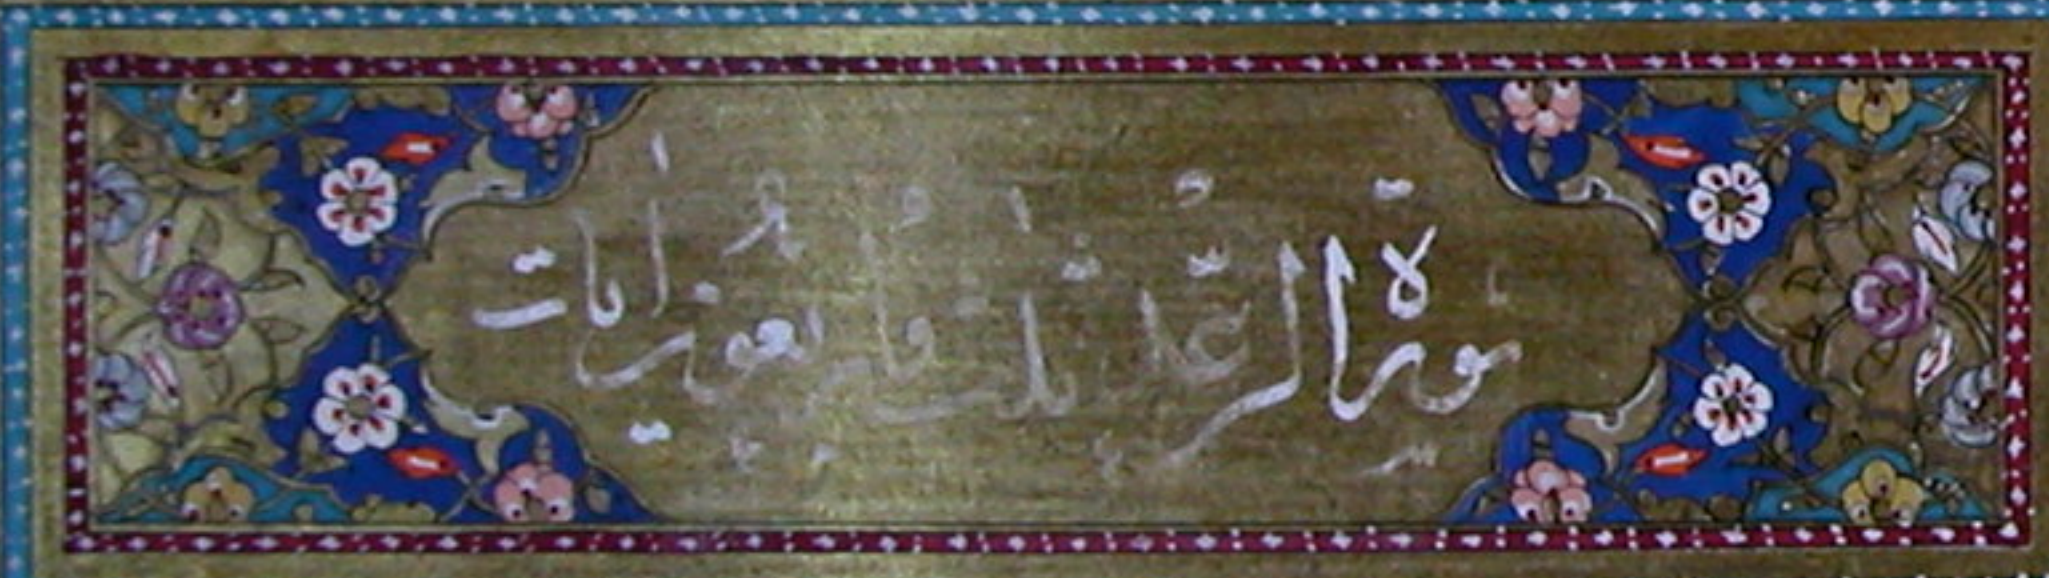 سورة الرّعد ثلث و اربعون ایات